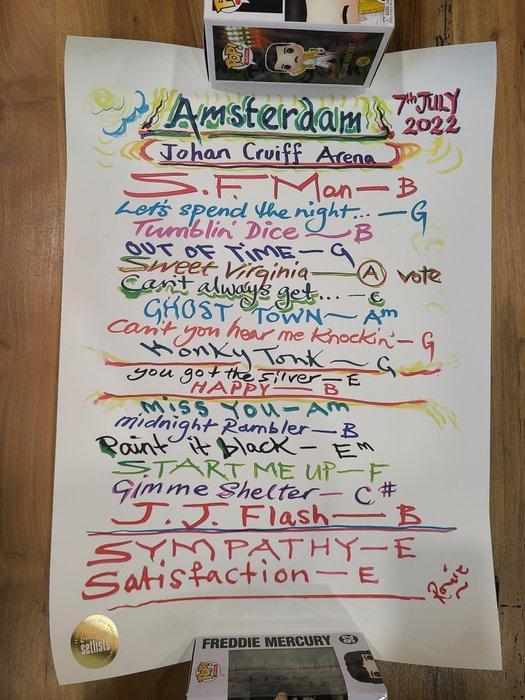 POP!
Amsterdam
7th JULY
2022
Johan Cruiff Arena
S.F. Man — B
Let's spend the night... — G
Tumblin' Dice — B
OUT OF TIME — G
Sweet Virginia — A vote
Can't always get... — C
GHOST TOWN — Am
Can't you hear me Knockin' — G
Honky Tonk — G
you got the silver — E
HAPPY — B
MISS YOU — Am
midnight Rambler — B
Paint it black — Em
START ME UP — F
Gimme Shelter — C#
J.J. Flash — B
SYMPATHY — E
Satisfaction — E
Ronnie
setlists
FREDDIE MERCURY
POP!